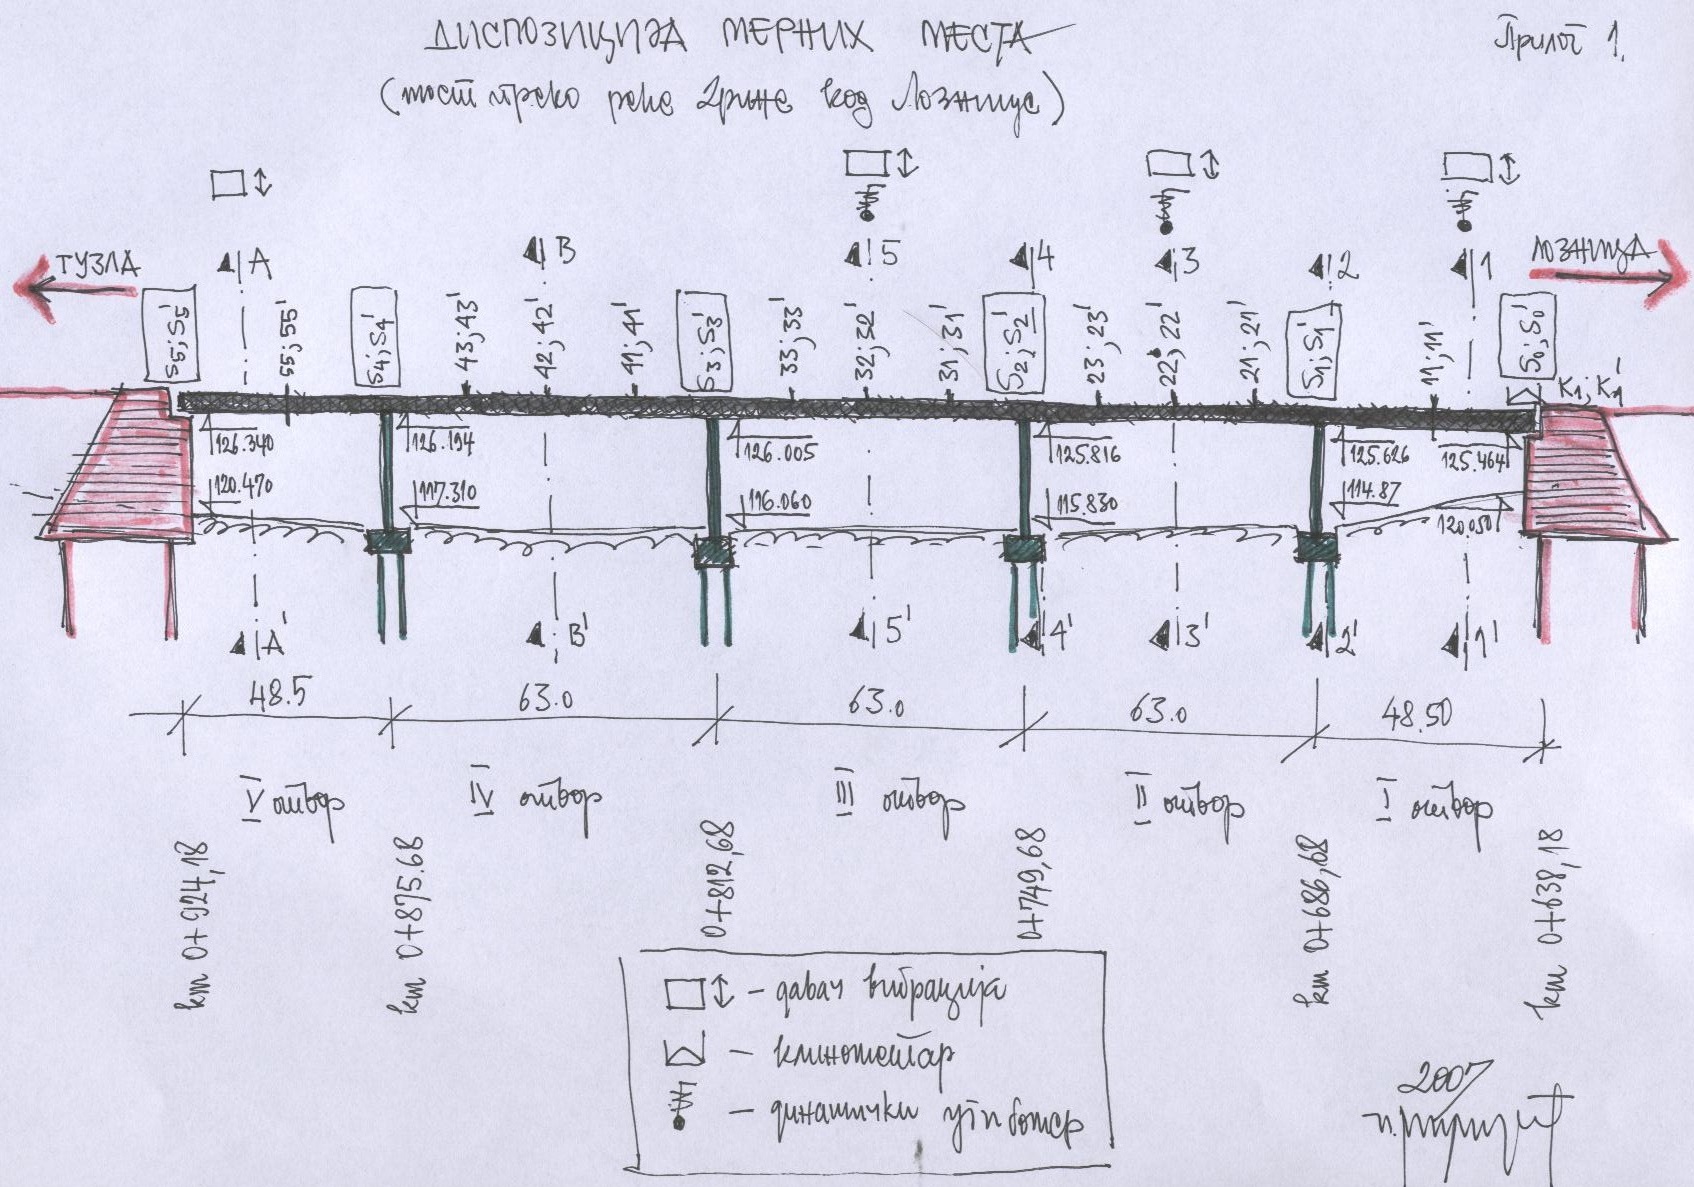 ДИСПОЗИЦИЈА МЕРНИХ МЕСТА
Прилог 1.
(мост преко реке Дрине код Лознице)
ТУЗЛА
A
B
5
4
3
2
1
ЛОЗНИЦА
S5; S5'
55; 55'
S4; S4'
43; 43'
42; 42'
41; 41'
S3; S3'
33; 33'
32; 32'
31; 31'
S2; S2'
23; 23'
22; 22'
21; 21'
S1; S1'
11; 11'
S0; S0'
K1; K1'
126.340
126.194
126.005
125.816
125.626
125.464
120.470
117.310
116.060
115.830
114.87
120.050
A'
B'
5'
4'
3'
2'
1'
48.5
63.0
63.0
63.0
48.50
V отвор
IV отвор
III отвор
II отвор
I отвор
km 0+924,18
km 0+875.68
0+812,68
0+749,68
km 0+686,68
km 0+638,18
- давач вибрација
- клинометар
- динамички угибомер
2007